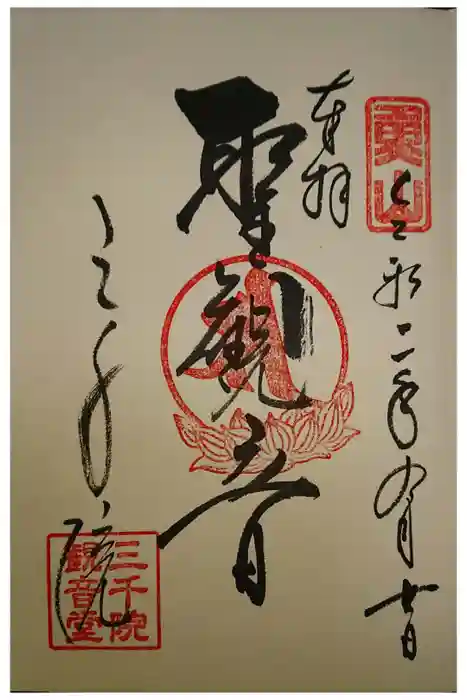 魚山
令和二年九月七日
奉拝
聖観音
三千院
三千院
観音堂